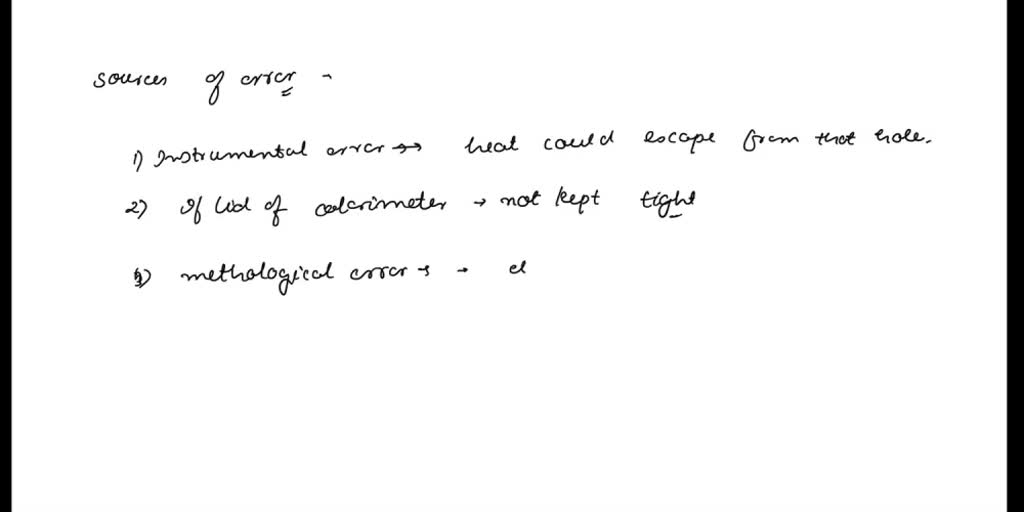 sources of error →
1) Instrumental error →→ heat could escape from that hole.
2) If lid of calorimeter → not kept tight
3) methological error → → el